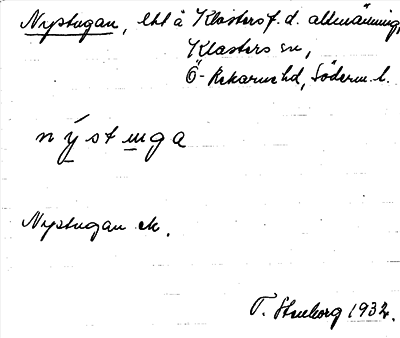 Nystugan, lht å Klosters f. d. allmänning,
Klosters sn,
Ö-Rekarne hd, Söderm. l.
nýstuga
Nystugan ek.
T. Stenborg 1932.